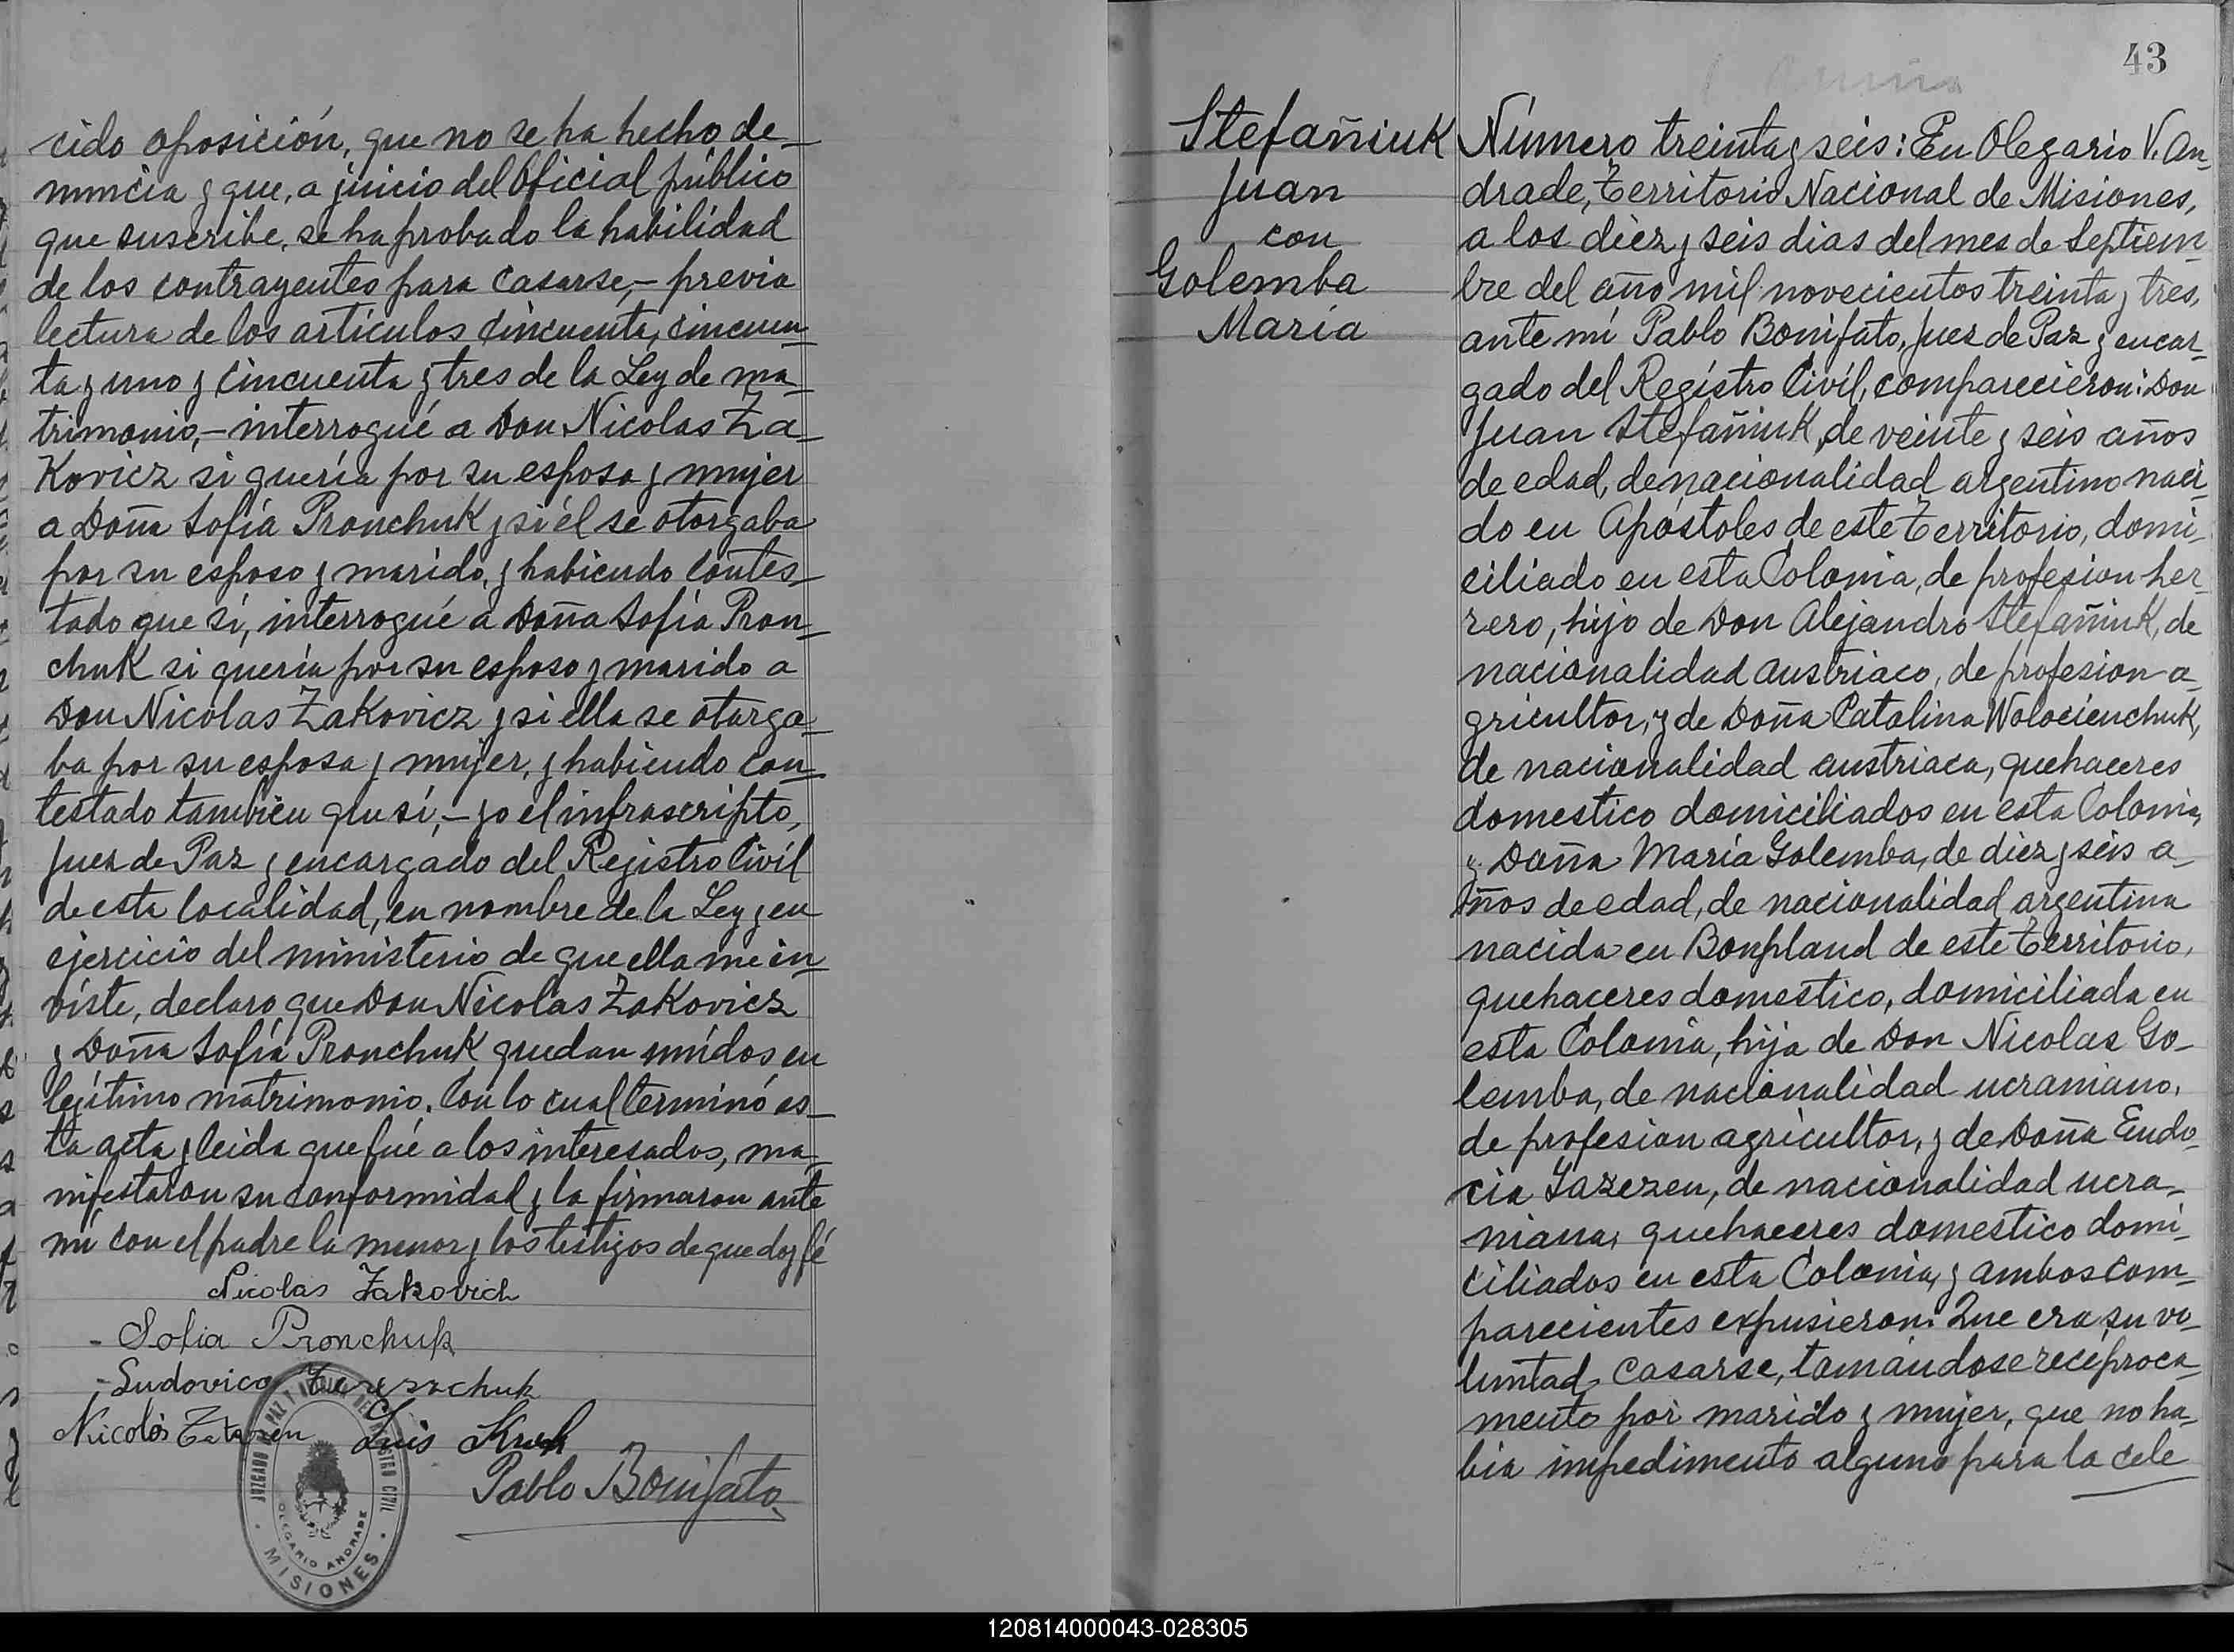 cido oposición, que no se ha hecho de_
nuncia y que, a juicio del Oficial público
que suscribe, se ha probado la habilidad
de los contrayentes para casarse,- previa
lectura de los artículos cincuenta, cincuen_
ta y uno y cincuenta y tres de la Ley de ma_
trimonio,- interrogué a Don Nicolas Za_
Kovicz si quería por su esposa y mujer
a Doña Sofía Pronchuk y si él se otorgaba
por su esposo y marido, y habiendo contes_
tado que sí, interrogué a Doña Sofía Pron_
chuk si quería por su esposo y marido a
Don Nicolas Zakovicz y si ella se otorga_
ba por su esposa y mujer, y habiendo con_
testado tambien que sí,- yo el infrascripto,
Juez de Paz y encargado del Registro Civil
de esta localidad, en nombre de la Ley y en
ejercicio del ministerio de que ella me in_
viste, declaro que Don Nicolas Zakovicz
y Doña Sofía Pronchuk quedan unidos en
legítimo matrimonio. Con lo cual terminó es_
ta acta y leida que fué a los interesados, ma_
nifestaron su conformidad y la firmaron ante
mí con el padre la menor y los testigos de que doy fé
Nicolas Zakovich
- Sofia Pronchuk
- Ludovico
Nicolás Luis
Pablo Bonifato
JUZGADO DE PAZ Y DEL REGISTRO CIVIL
OLEGARIO ANDRADE
MISIONES
43
Stefañiuk
Juan
con
Golemba
María
Número treinta y seis: En Olegario V. An_
drade, Territorio Nacional de Misiones,
a los diez y seis dias del mes de Septiem_
bre del año mil novecientos treinta y tres,
ante mí Pablo Bonifato, Juez de Paz y encar_
gado del Registro Civil, comparecieron: Don
Juan Stefañiuk, de veinte y seis años
de edad, de nacionalidad argentino naci_
do en Apóstoles de este Territorio, domi_
ciliado en esta Colonia, de profesion her_
rero, hijo de Don Alejandro Stefañiuk, de
nacionalidad austriaco, de profesion a_
gricultor, y de Doña Catalina Wolocienchuk,
de nacionalidad austriaca, quehaceres
domestico domiciliados en esta Colonia,
y Doña María Golemba, de diez y seis a_
ños de edad, de nacionalidad argentina
nacida en Bonpland de este Territorio,
quehaceres domestico, domiciliada en
esta Colonia, hija de Don Nicolas Go_
lemba, de nacionalidad ucraniano,
de profesion agricultor, y de Doña Eudo_
cia Jazezen, de nacionalidad ucra_
niana, quehaceres domestico domi_
ciliados en esta Colonia, y ambos com_
parecientes expusieron: Que era su vo_
luntad casarse, tomándose recíproca_
mente por marido y mujer, que no ha_
bia impedimento alguno para la cele
120814000043-028305